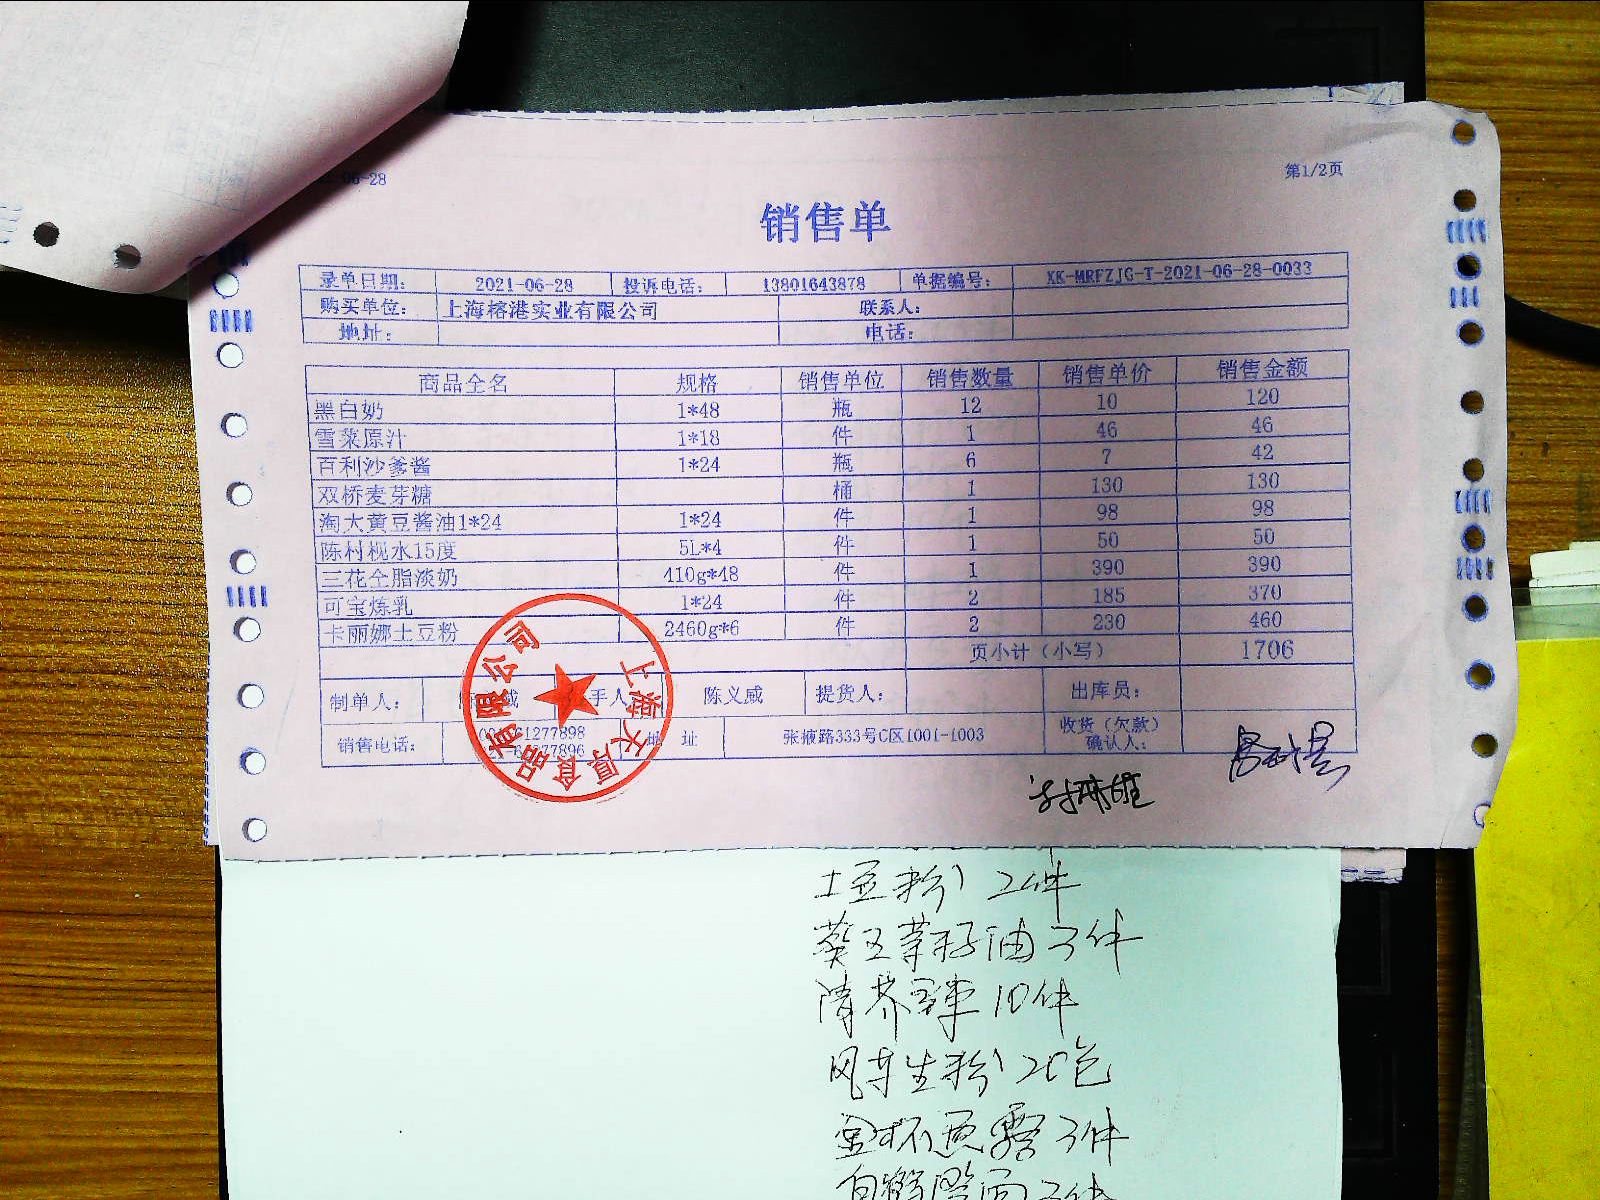 06-28
第1/2页
销售单
录单日期： 2021-06-28 投诉电话： 13801643878 单据编号： XK-MRFZJG-T-2021-06-28-0033
购买单位： 上海榕港实业有限公司 联系人：
地址： 电话：
商品全名 规格 销售单位 销售数量 销售单价 销售金额
黑白奶 1*48 瓶 12 10 120
雪菜原汁 1*18 件 1 46 46
百利沙爹酱 1*24 瓶 6 7 42
双桥麦芽糖 桶 1 130 130
淘大黄豆酱油1*24 1*24 件 1 98 98
陈村枧水15度 5L*4 件 1 50 50
三花全脂淡奶 410g*48 件 1 390 390
可宝炼乳 1*24 件 2 185 370
卡丽娜土豆粉 2460g*6 件 2 230 460
页小计（小写） 1706
制单人： 威 手人 陈义威 提货人： 出库员：
销售电话： 61277898 地 址 张掖路333号C区1001-1003 收货（欠款）
277896 确认人：
上海大厚食品有限公司
土豆粉 2件
葵王菜籽油 3件
10件
风车生粉 20包
3件